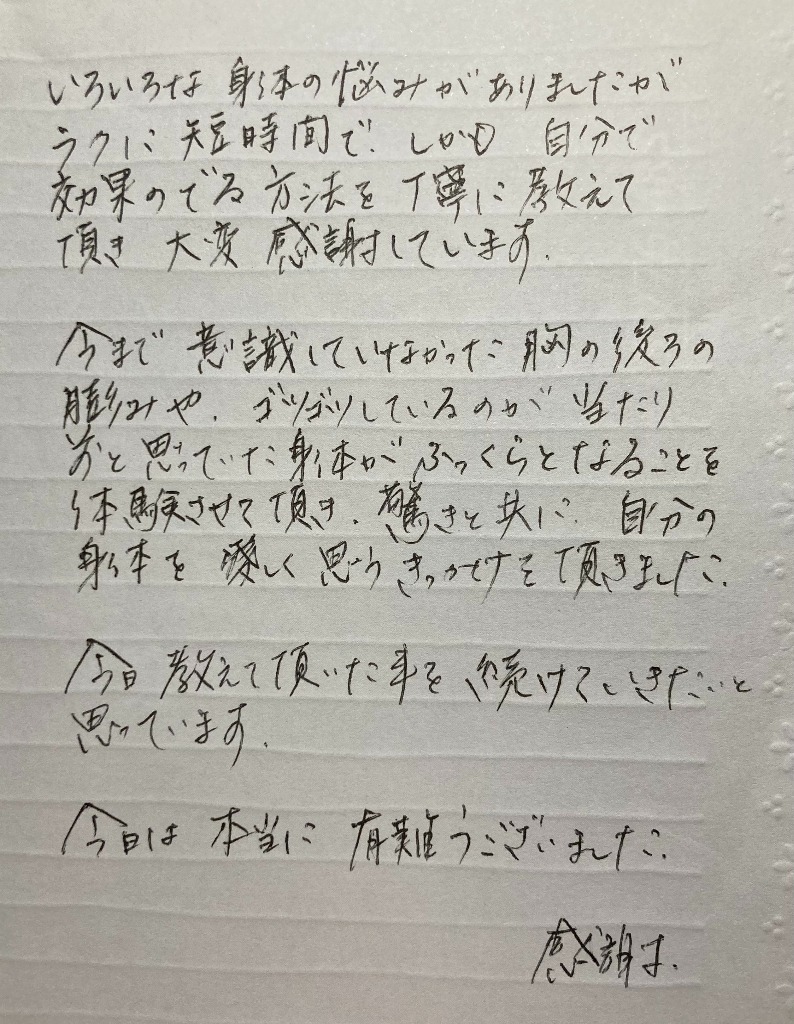 いろいろな 身体の悩みがありましたが
ラクに 短時間で、しかも 自分で
効果のでる 方法を 丁寧に 教えて
頂き 大変 感謝しています.
今まで 意識していなかった 胸の後ろの
膨らみや、ゴツゴツしているのが 当たり
前と 思っていた身体が ふっくらとなることを
体験させて頂き、驚きと共に、自分の
身体を 愛しく 思う きっかけを 頂きました.
今日 教えて頂いた事を 続けていきたいと
思っています.
今日は 本当に 有難うございました.